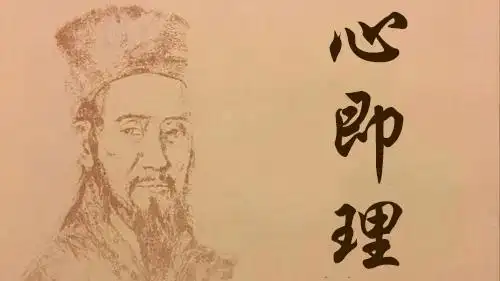 心即理